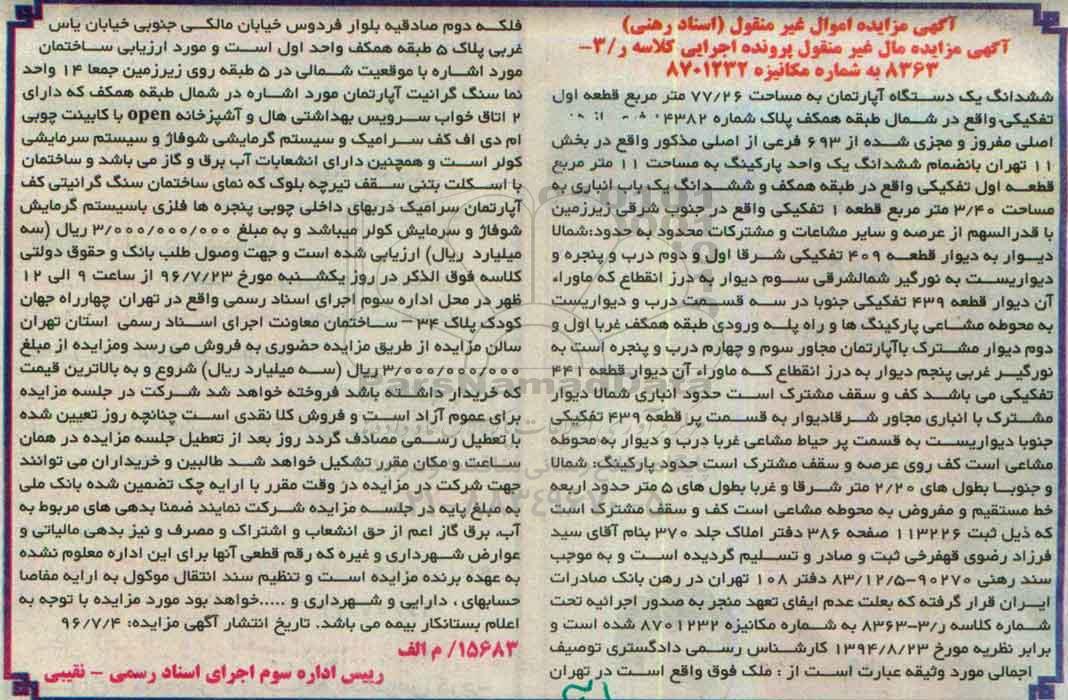 آگهی مزایده اموال غیر منقول (اسناد رهنی)
آگهی مزایده مال غیر منقول پرونده اجرایی کلاسه ر/۳-
۸۳۶۳ به شماره مکانیزه ۸۷۰۱۲۳۲
ششدانگ یک دستگاه آپارتمان به مساحت ۷۷/۲۶ متر مربع قطعه اول
تفکیکی واقع در شمال طبقه همکف پلاک شماره ۴۳۸۲
اصلی مفروز و مجزی شده از ۶۹۳ فرعی از اصلی مذکور واقع در بخش
۱۱ تهران بانضمام ششدانگ یک واحد پارکینگ به مساحت ۱۱ متر مربع
قطعه اول تفکیکی واقع در طبقه همکف و ششدانگ یک باب انباری به
مساحت ۳/۴۰ متر مربع قطعه ۱ تفکیکی واقع در جنوب شرقی زیرزمین
با قدرالسهم از عرصه و سایر مشاعات و مشترکات محدود به حدود:شمالا
دیوار به دیوار قطعه ۴۰۹ تفکیکی شرقا اول و دوم درب و پنجره و
دیواریست به نورگیر شمالشرقی سوم دیوار به درز انقطاع که ماوراء
آن دیوار قطعه ۴۳۹ تفکیکی جنوبا در سه قسمت درب و دیواریست
به محوطه مشاعی پارکینگ ها و راه پله ورودی طبقه همکف غربا اول و
دوم دیوار مشترک باآپارتمان مجاور سوم و چهارم درب و پنجره است به
نورگیر غربی پنجم دیوار به درز انقطاع که ماوراء آن دیوار قطعه ۴۴۱
تفکیکی می باشد کف و سقف مشترک است حدود انباری شمالا دیوار
مشترک با انباری مجاور شرقادیوار به قسمت پر قطعه ۴۳۹ تفکیکی
جنوبا دیواریست به قسمت پر حیاط مشاعی غربا درب و دیوار به محوطه
مشاعی است کف روی عرصه و سقف مشترک است حدود پارکینگ: شمالا
و جنوبا بطول های ۲/۲۰ متر شرقا و غربا بطول های ۵ متر حدود اربعه
خط مستقیم و مفروض به محوطه مشاعی است کف و سقف مشترک است
که ذیل ثبت ۱۱۳۲۲۶ صفحه ۳۸۶ دفتر املاک جلد ۳۷۰ بنام آقای سید
فرزاد رضوی قهفرخی ثبت و صادر و تسلیم گردیده است و به موجب
سند رهنی ۹۰۲۷۰-۸۳/۱۲/۵ دفتر ۱۰۸ تهران در رهن بانک صادرات
ایران قرار گرفته که بعلت عدم ایفای تعهد منجر به صدور اجرائیه تحت
شماره کلاسه ر/۳-۸۳۶۳ به شماره مکانیزه ۸۷۰۱۲۳۲ شده است و
برابر نظریه مورخ ۱۳۹۴/۸/۲۳ کارشناس رسمی دادگستری توصیف
اجمالی مورد وثیقه عبارت است از : ملک فوق واقع است در تهران
فلکه دوم صادقیه بلوار فردوس خیابان مالکی جنوبی خیابان یاس
غربی پلاک ۵ طبقه همکف واحد اول است و مورد ارزیابی ساختمان
مورد اشاره با موقعیت شمالی در ۵ طبقه روی زیرزمین جمعا ۱۴ واحد
نما سنگ گرانیت آپارتمان مورد اشاره در شمال طبقه همکف که دارای
۲ اتاق خواب سرویس بهداشتی هال و آشپزخانه open با کابینت چوبی
ام دی اف کف سرامیک و سیستم گرمایشی شوفاژ و سیستم سرمایشی
کولر است و همچنین دارای انشعابات آب برق و گاز می باشد و ساختمان
با اسکلت بتنی سقف تیرچه بلوک که نمای ساختمان سنگ گرانیتی کف
آپارتمان سرامیک دربهای داخلی چوبی پنجره ها فلزی باسیستم گرمایش
شوفاژ و سرمایش کولر میباشد و به مبلغ ۳/۰۰۰/۰۰۰/۰۰۰ ریال (سه
میلیارد ریال) ارزیابی شده است و جهت وصول طلب بانک و حقوق دولتی
کلاسه فوق الذکر در روز یکشنبه مورخ ۹۶/۷/۲۳ از ساعت ۹ الی ۱۲
ظهر در محل اداره سوم اجرای اسناد رسمی واقع در تهران چهارراه جهان
کودک پلاک ۳۴ – ساختمان معاونت اجرای اسناد رسمی استان تهران
سالن مزایده از طریق مزایده حضوری به فروش می رسد ومزایده از مبلغ
۳/۰۰۰/۰۰۰/۰۰۰ ریال (سه میلیارد ریال) شروع و به بالاترین قیمت
که خریدار داشته باشد فروخته خواهد شد شرکت در جلسه مزایده
برای عموم آزاد است و فروش کلا نقدی است چنانچه روز تعیین شده
با تعطیل رسمی مصادف گردد روز بعد از تعطیل جلسه مزایده در همان
ساعت و مکان مقرر تشکیل خواهد شد طالبین و خریداران می توانند
جهت شرکت در مزایده در وقت مقرر با ارایه چک تضمین شده بانک ملی
به مبلغ پایه در جلسه مزایده شرکت نمایند ضمنا بدهی های مربوط به
آب، برق گاز اعم از حق انشعاب و اشتراک و مصرف و نیز بدهی مالیاتی و
عوارض شهرداری و غیره که رقم قطعی آنها برای این اداره معلوم نشده
به عهده برنده مزایده است و تنظیم سند انتقال موکول به ارایه مفاصا
حسابهای ، دارایی و شهرداری و .....خواهد بود مورد مزایده با توجه به
اعلام بستانکار بیمه می باشد. تاریخ انتشار آگهی مزایده: ۹۶/۷/۴
۱۵۶۸۳/ م الف
رییس اداره سوم اجرای اسناد رسمی – نقیبی
ParsNamadData